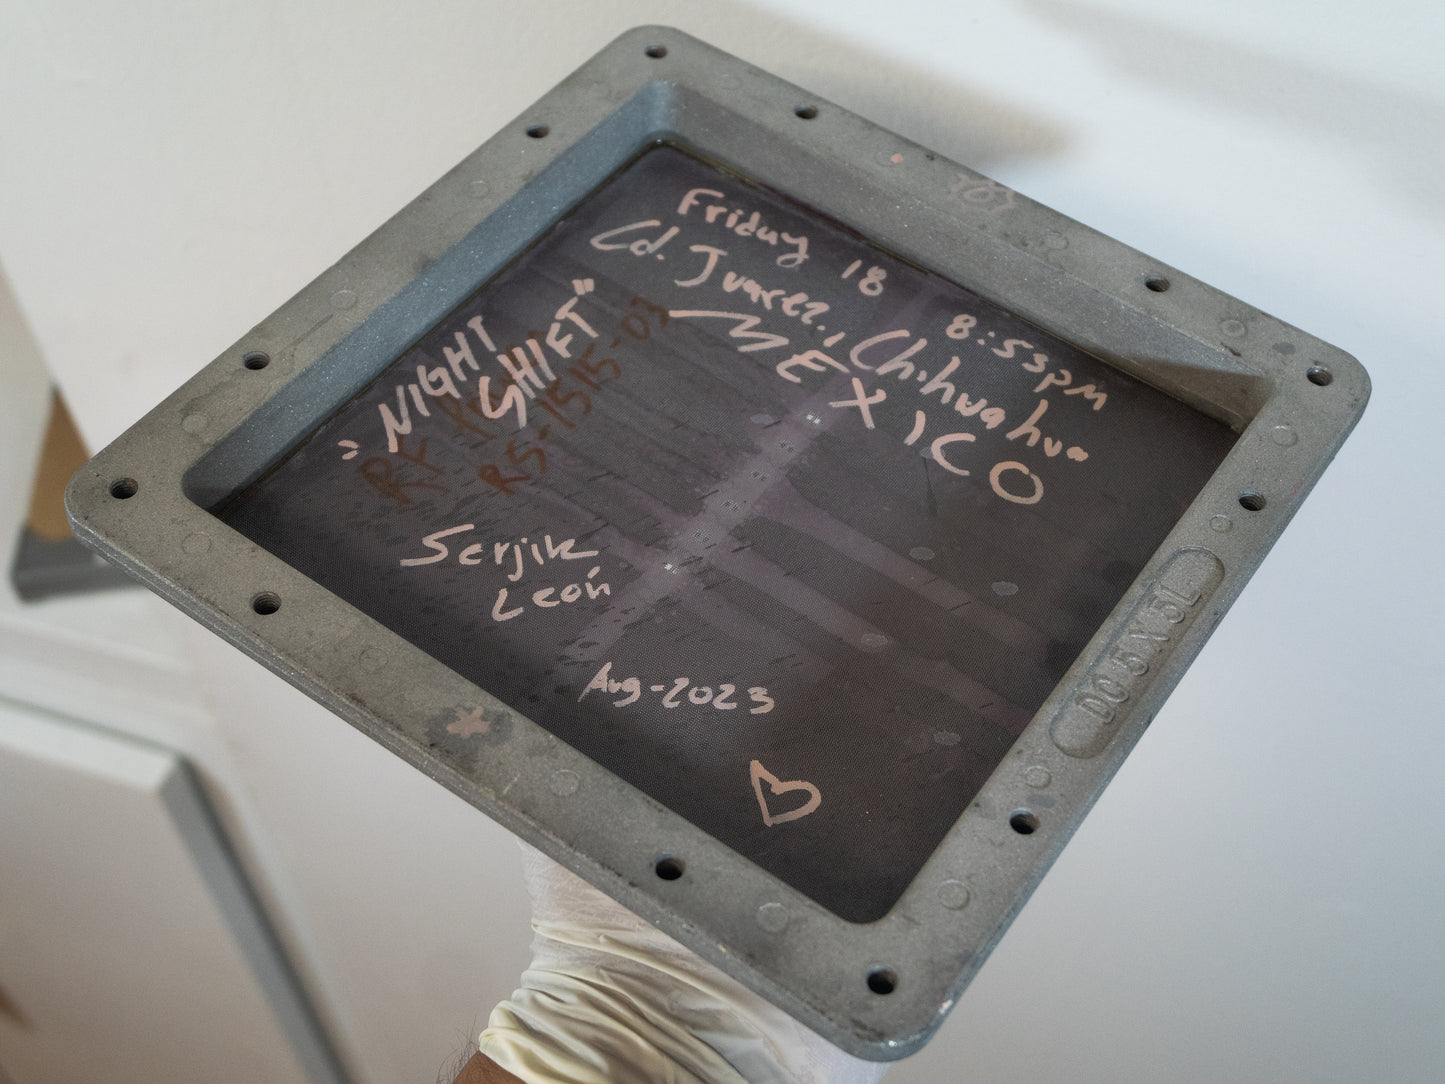 Friday 18 8:53pm
Cd. Juarez., Chihuahua
MEXICO
"NIGHT
SHIFT"
RF
R5-1515-03
Serjik
León
Aug-2023
DC 5X5L